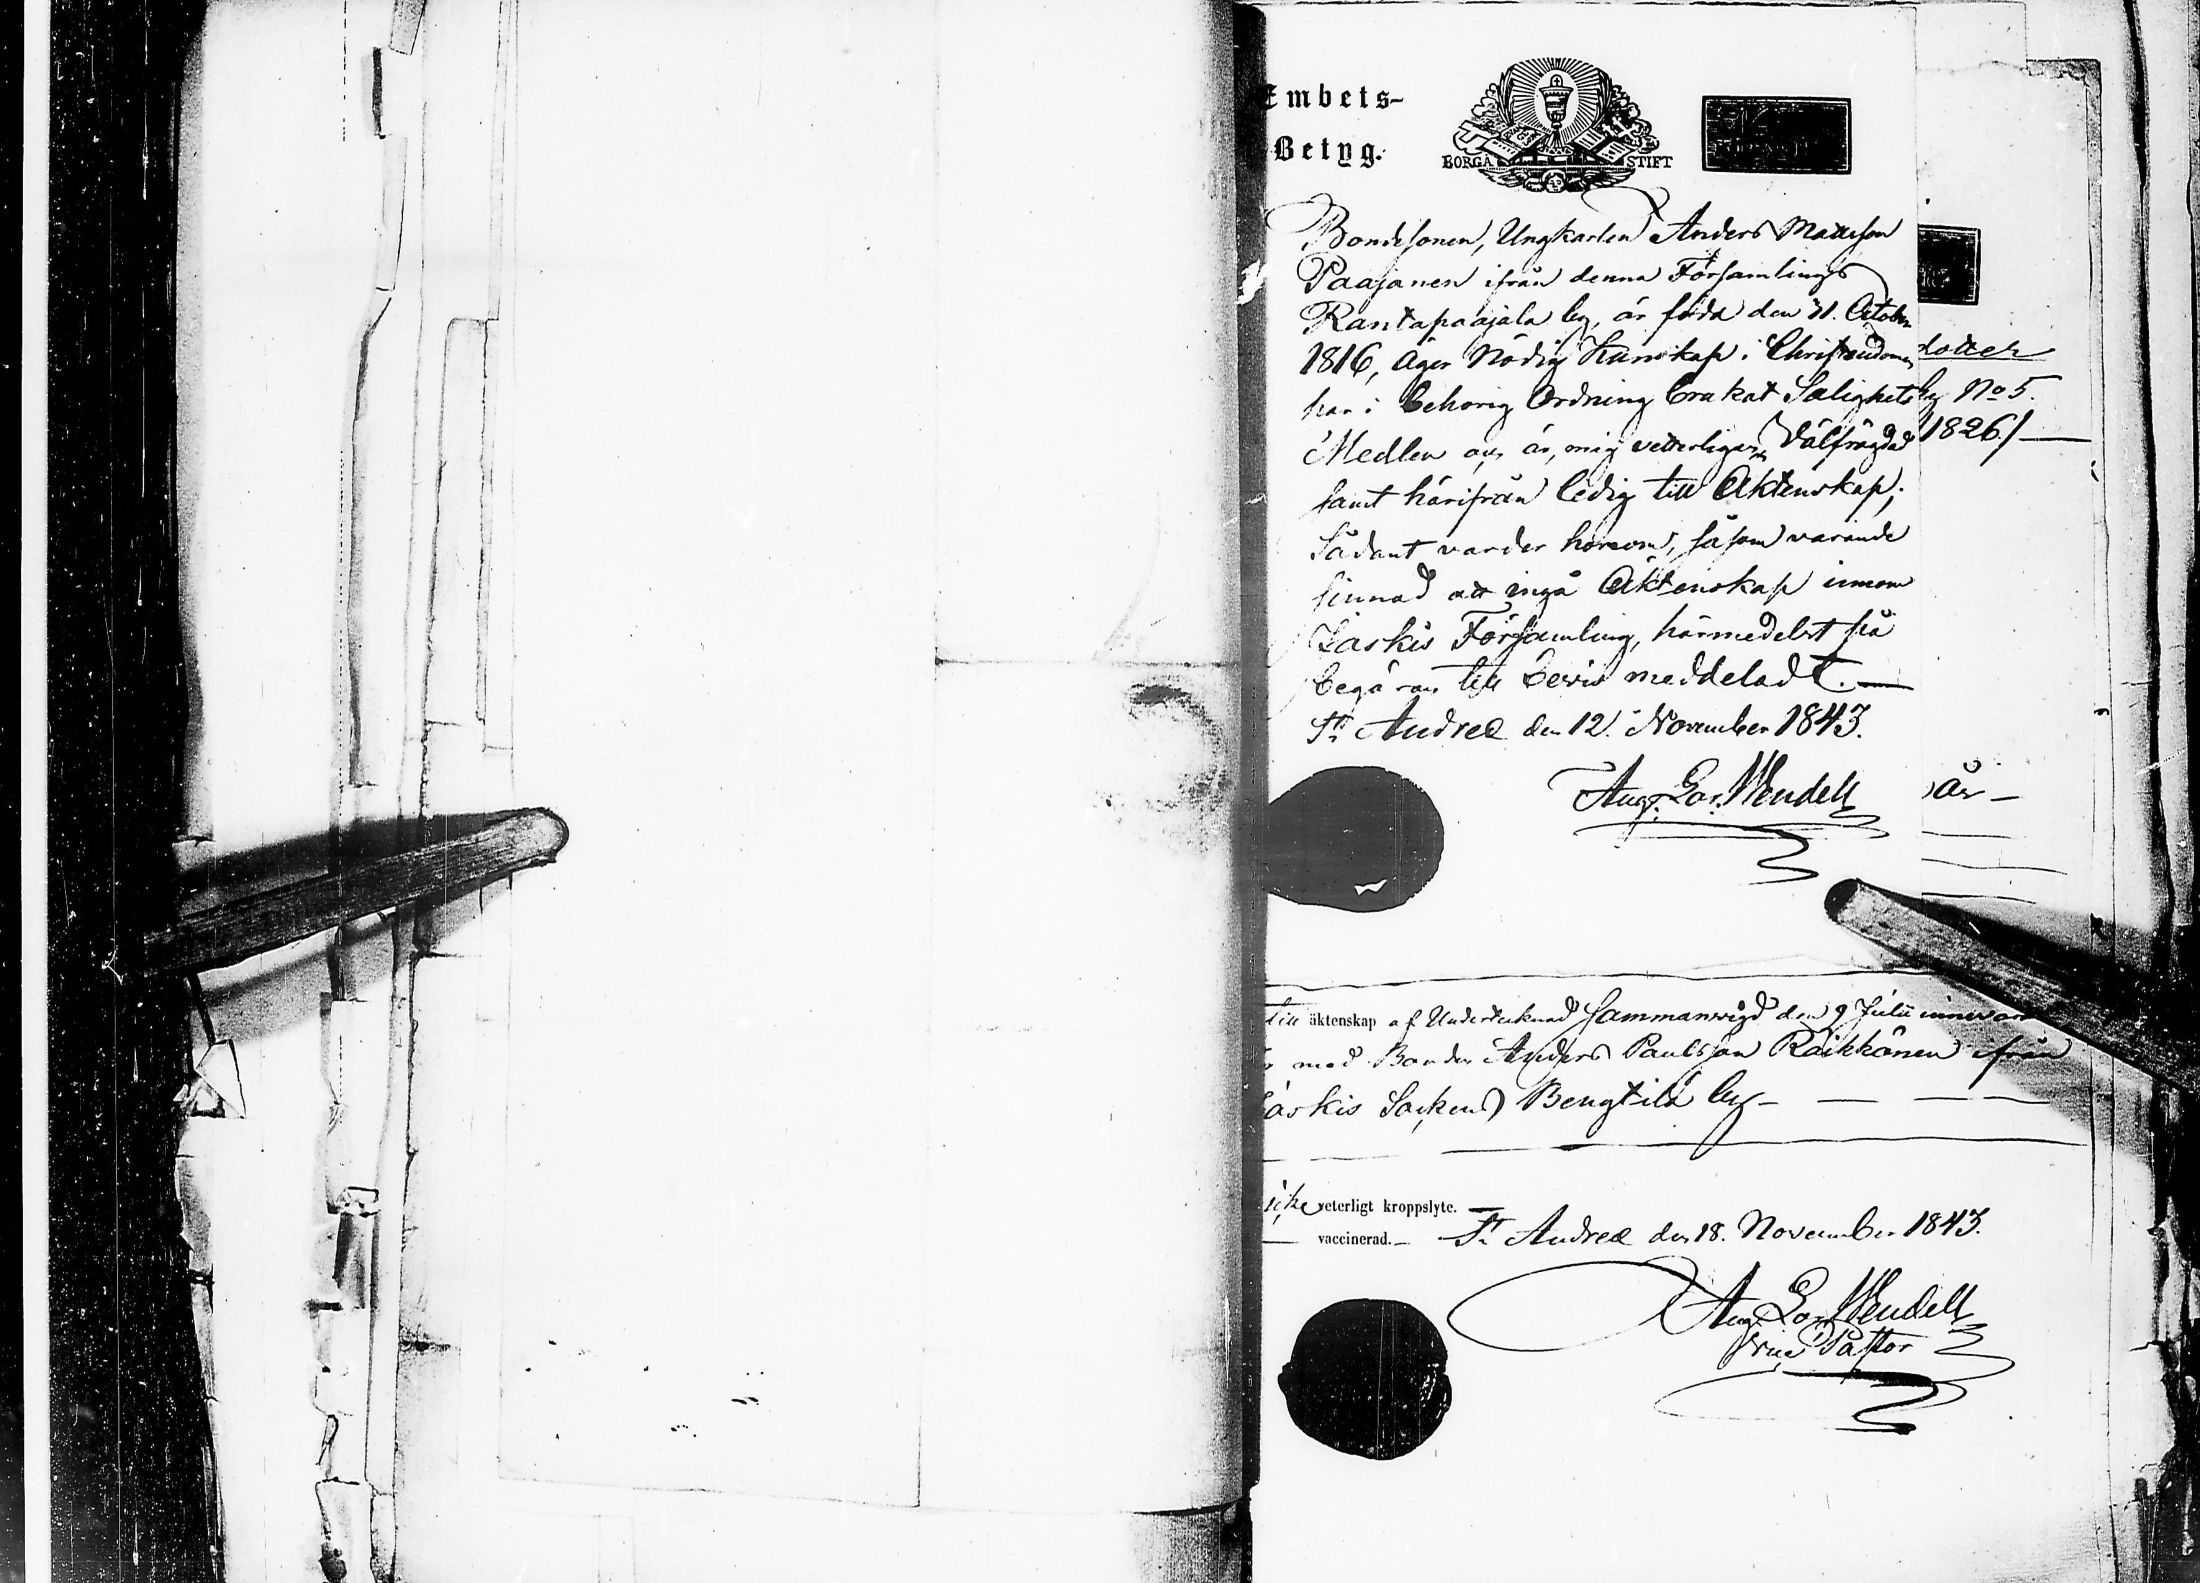 Embets-
Betyg.
BORGÅ STIFT
Bondesonen, Ungkarlen Anders Mattsson
Paajanen ifrån denna Församlings
Rantapaajala by, är född den 31. October
1816, äger Nödig Kunskap i Christendomen
har i behörig Ordning brukat Salighets
Medlen och är, mig vetterligen, Välfrägdad
samt härifrån ledig till Äktenskap;
Sådant varder honom, såsom varande
sinnad att ingå Äktenskap innom
Jäskis Församling, härmedelst på
begäran till bevis meddeladt.
St. Andreæ den 12. November 1843.
Aug. Gor. Wendell
dotter
by No 5.
1826./
är
till äktenskap af Undertecknad Sammanvigd den 9 Julii innevar
med Bonden Anders Paulsson Räikkönen ifrån
Jäskis Socken Bengtilä by
icke veterligt kroppslyte.
vaccinerad. St. Andreæ den 18. November 1843.
Aug. Gor. Wendell
Pastor